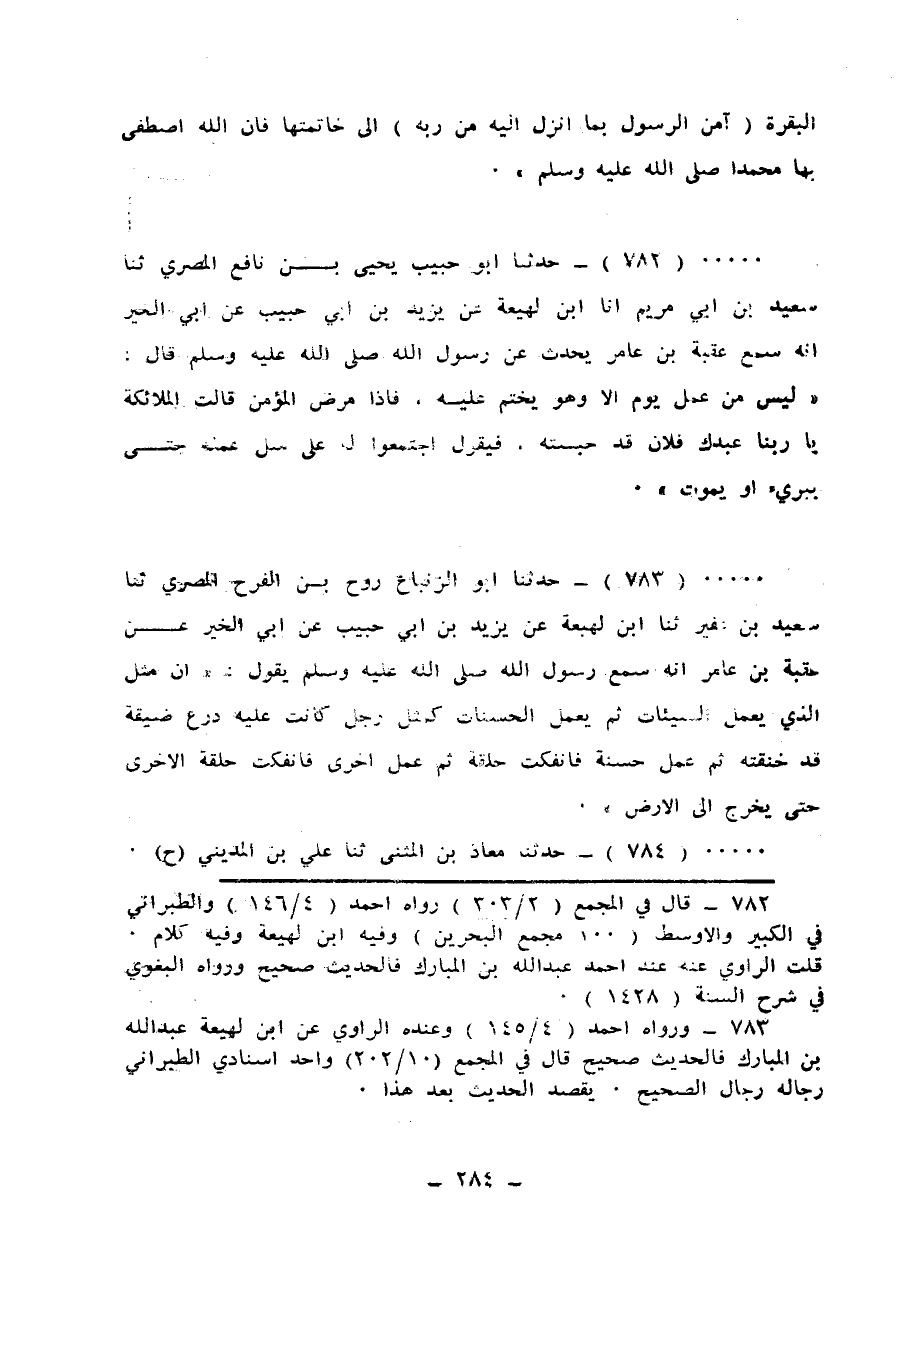 البقرة ( آمن الرسول بما انزل اليه من ربه ) الى خاتمتها فان الله اصطفى
بها محمدا صلى الله عليه وسلم » ٠
٠٠٠٠٠ ( ٧٨٢ ) ــ حدثنا ابو حبيب يحيى بـــــن نافع المصري ثنا
سعيد بن ابي مريم انا ابن لهيعة عن يزيد بن ابي حبيب عن ابي الخير
انه سمع عقبة بن عامر يحدث عن رسول الله صلى الله عليه وسلم قال :
« ليس من عمل يوم الا وهو يختم عليـــه ، فاذا مرض المؤمن قالت الملائكة
يا ربنا عبدك فلان قد حبسته ، فيقول اجتمعوا له على عمله حتـــى
يبريء او يموت » ٠
٠٠٠٠٠ ( ٧٨٣ ) ــ حدثنا ابو الزنباع روح بــن الفرح المصري ثنا
سعيد بن عفير ثنا ابن لهيعة عن يزيد بن ابي حبيب عن ابي الخير عـــــن
عقبة بن عامر انه سمع رسول الله صلى الله عليه وسلم يقول : « ان مثل
الذي يعمل السيئات ثم يعمل الحسنات كمثل رجل كانت عليه درع ضيقة
قد خنقته ثم عمل حسنة فانفكت حلقة ثم عمل اخرى فانفكت حلقة الاخرى
حتى يخرج الى الارض » ٠
٠٠٠٠٠ ( ٧٨٤ ) ــ حدثنا معاذ بن المثنى ثنا علي بن المديني (ح) ٠
٧٨٢ ــ قال في المجمع ( ٣٠٣/٢ ) رواه احمد ( ١٤٦/٤ ) والطبراني
في الكبير والاوسط ( ١٠٠ مجمع البحرين ) وفيه ابن لهيعة وفيه كلام ٠
قلت الراوي عنه عند احمد عبدالله بن المبارك فالحديث صحيح ورواه البغوي
في شرح السنة ( ١٤٢٨ ) ٠
٧٨٣ ــ ورواه احمد ( ١٤٥/٤ ) وعنده الراوي عن ابن لهيعة عبدالله
بن المبارك فالحديث صحيح قال في المجمع (٢٠٢/١٠) واحد اسنادي الطبراني
رجاله رجال الصحيح ٠ يقصد الحديث بعد هذا ٠
ــ ٢٨٤ ــ